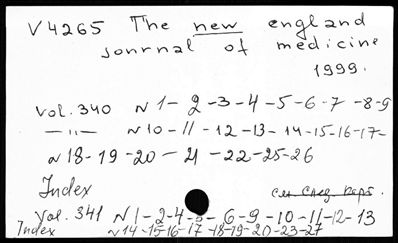 V 4265 The new england
journal of medicine
1999.
Vol. 340 N 1 - 2 - 3 - 4 - 5 - 6 - 7 - 8 - 9
— 11 — N 10 - 11 - 12 - 13 - 14 - 15 - 16 - 17 -
N 18 - 19 - 20 - 21 - 22 - 25 - 26
Index
см. след. карт.
Vol. 341 N 1 - 2 - 4 - 5 - 6 - 9 - 10 - 11 - 12 - 13
Index N 14 - 15 - 16 - 17 - 18 - 19 - 20 - 23 - 27